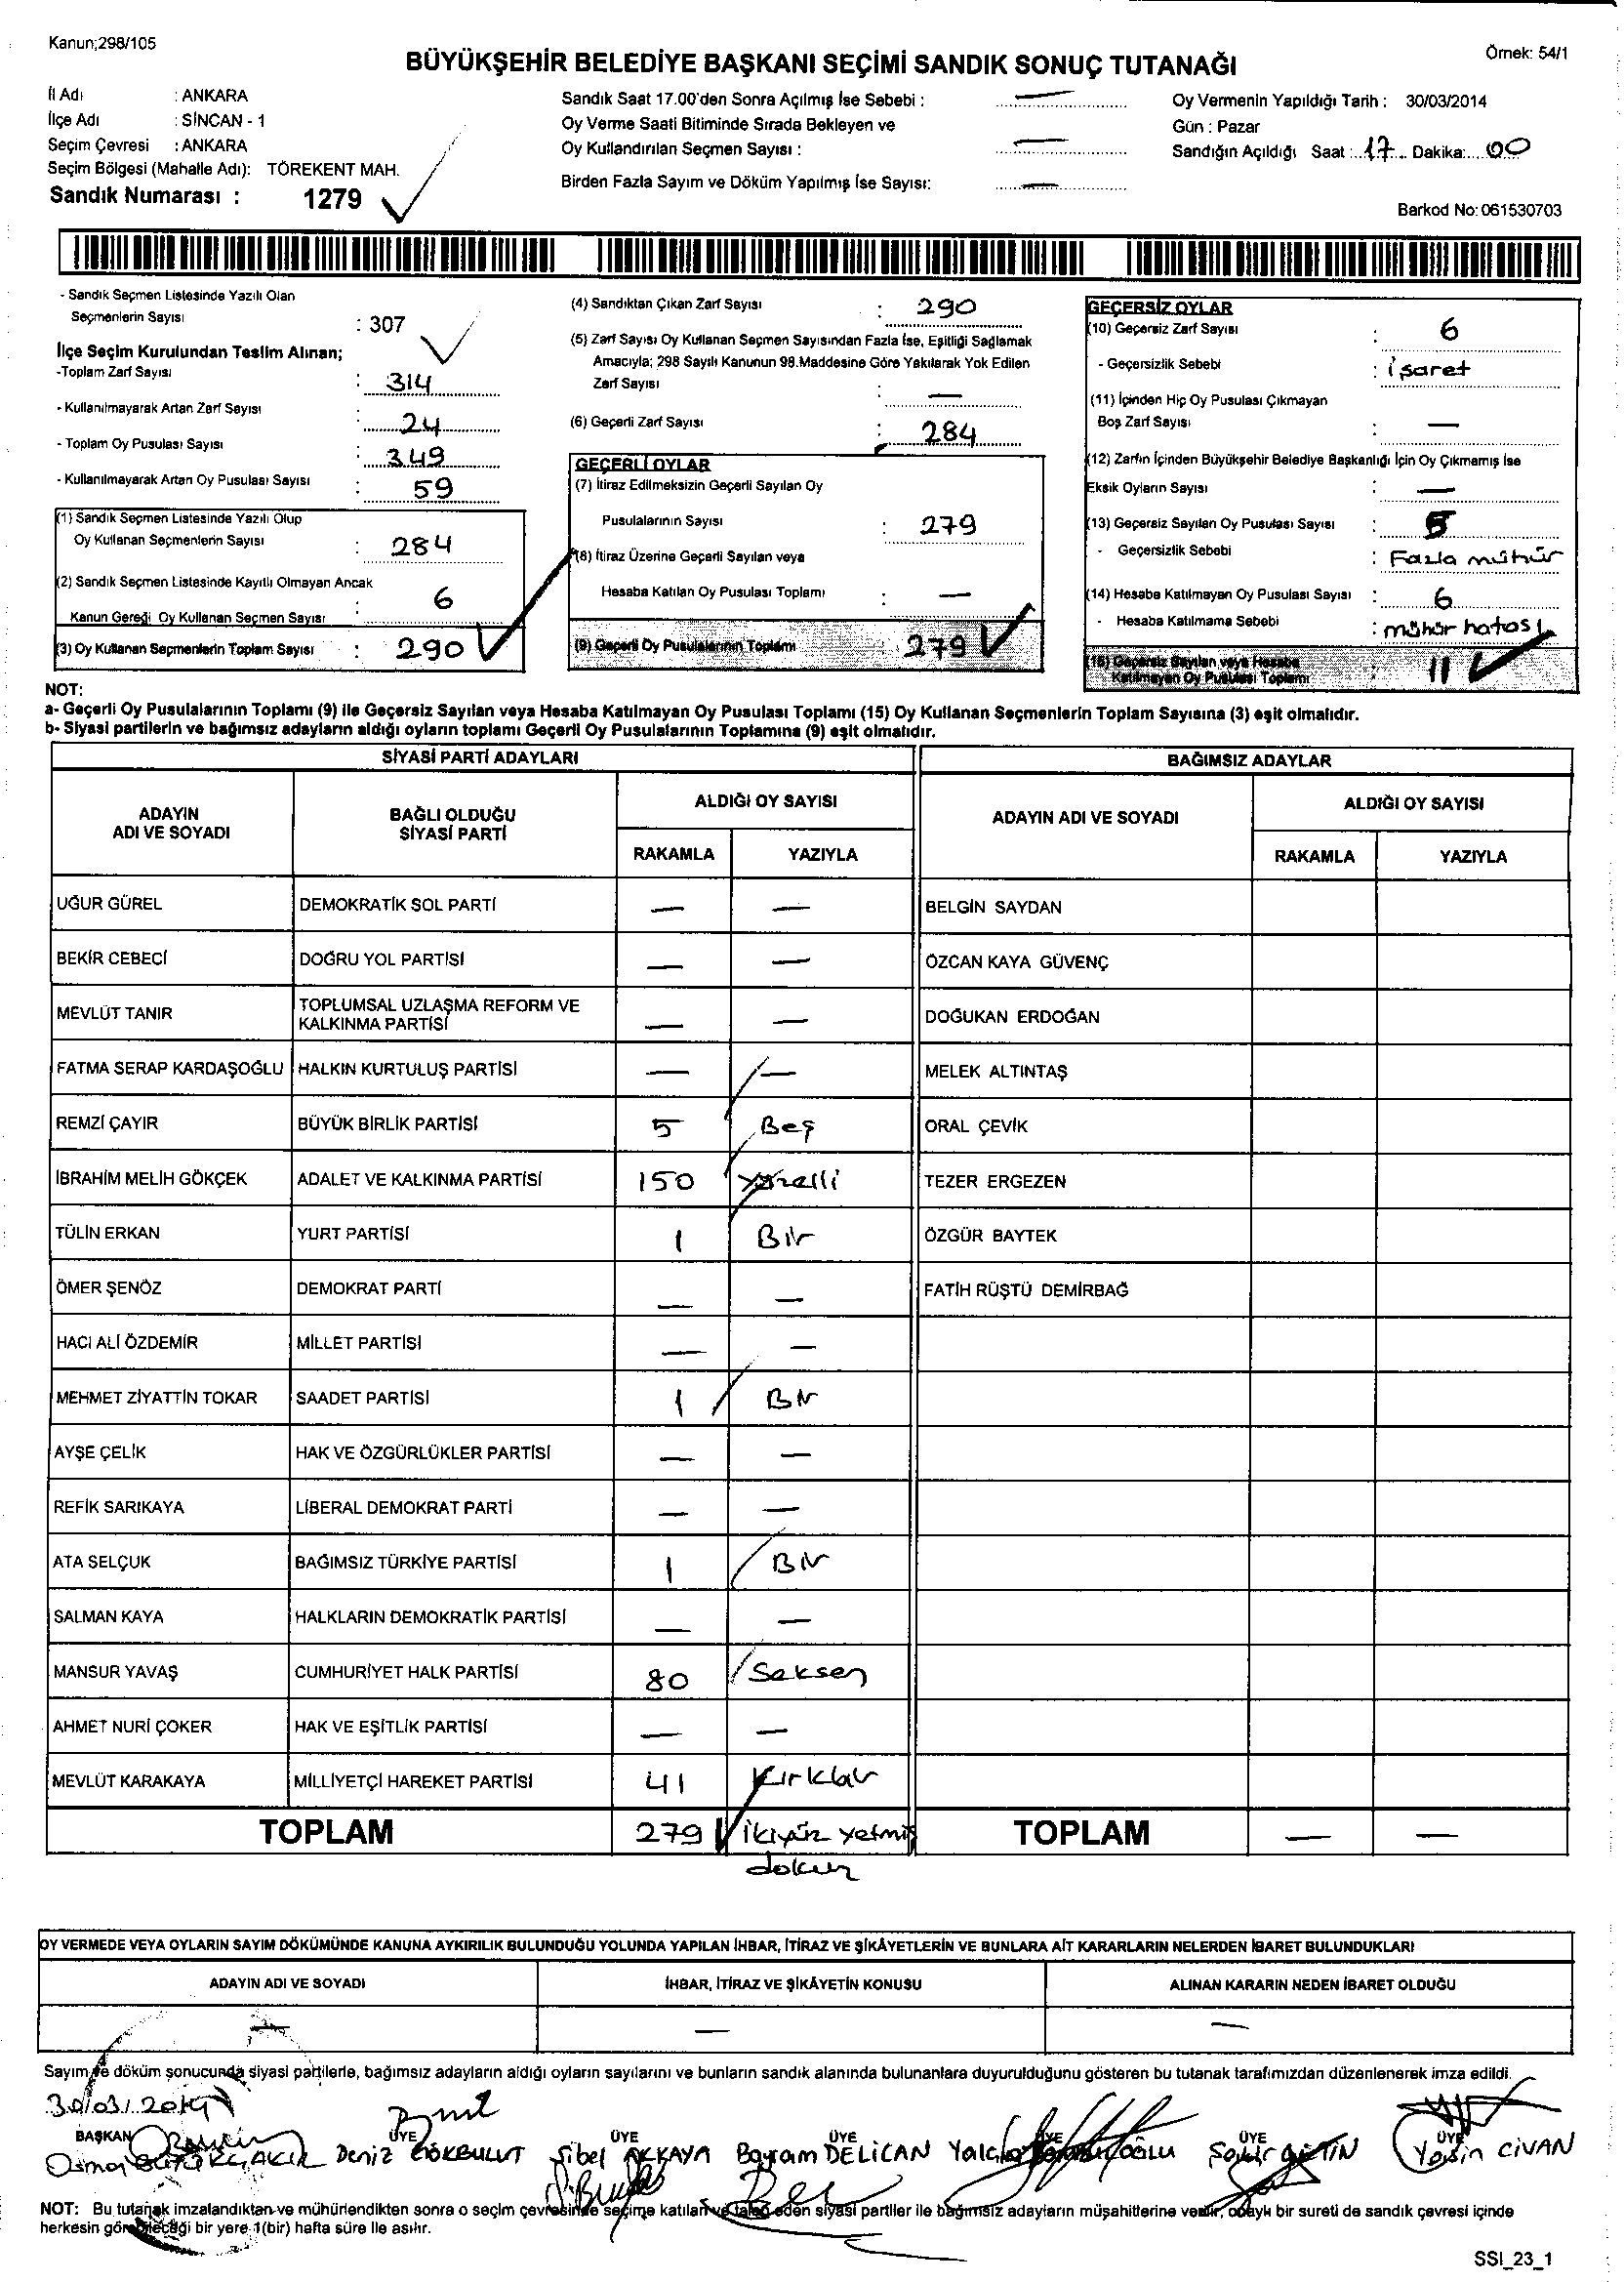 Kanun;298/105
Örnek: 54/1
BÜYÜKŞEHİR BELEDİYE BAŞKANI SEÇİMİ SANDIK SONUÇ TUTANAĞI
İl Adı : ANKARA
İlçe Adı : SİNCAN - 1
Seçim Çevresi : ANKARA
Seçim Bölgesi (Mahalle Adı): TÖREKENT MAH.
Sandık Numarası : 1279
Sandık Saat 17.00'den Sonra Açılmış İse Sebebi : —
Oy Verme Saati Bitiminde Sırada Bekleyen ve
Oy Kullandırılan Seçmen Sayısı : —
Birden Fazla Sayım ve Döküm Yapılmış İse Sayısı: —
Oy Vermenin Yapıldığı Tarih : 30/03/2014
Gün : Pazar
Sandığın Açıldığı Saat : 17 Dakika: 00
Barkod No: 061530703
- Sandık Seçmen Listesinde Yazılı Olan
Seçmenlerin Sayısı : 307
İlçe Seçim Kurulundan Teslim Alınan;
-Toplam Zarf Sayısı : 314
- Kullanılmayarak Artan Zarf Sayısı : 24
- Toplam Oy Pusulası Sayısı : 349
- Kullanılmayarak Artan Oy Pusulası Sayısı : 59
(1) Sandık Seçmen Listesinde Yazılı Olup
Oy Kullanan Seçmenlerin Sayısı : 284
(2) Sandık Seçmen Listesinde Kayıtlı Olmayan Ancak
Kanun Gereği Oy Kullanan Seçmen Sayısı : 6
(3) Oy Kullanan Seçmenlerin Toplam Sayısı : 290
(4) Sandıktan Çıkan Zarf Sayısı : 290
(5) Zarf Sayısı Oy Kullanan Seçmen Sayısından Fazla İse, Eşitliği Sağlamak
Amacıyla; 298 Sayılı Kanunun 98.Maddesine Göre Yakılarak Yok Edilen
Zarf Sayısı : —
(6) Geçerli Zarf Sayısı : 284
GEÇERLİ OYLAR
(7) İtiraz Edilmeksizin Geçerli Sayılan Oy
Pusulalarının Sayısı : 279
(8) İtiraz Üzerine Geçerli Sayılan veya
Hesaba Katılan Oy Pusulası Toplamı : —
(9) Geçerli Oy Pusulalarının Toplamı 279
GEÇERSİZ OYLAR
(10) Geçersiz Zarf Sayısı : 6
- Geçersizlik Sebebi : işaret
(11) İçinden Hiç Oy Pusulası Çıkmayan
Boş Zarf Sayısı : —
(12) Zarfın İçinden Büyükşehir Belediye Başkanlığı İçin Oy Çıkmamış İse
Eksik Oyların Sayısı : —
(13) Geçersiz Sayılan Oy Pusulası Sayısı : 5
- Geçersizlik Sebebi : Fazla mühür
(14) Hesaba Katılmayan Oy Pusulası Sayısı : 6
- Hesaba Katılmama Sebebi : mühür hatası
(15) Geçersiz Sayılan veya Hesaba
Katılmayan Oy Pusulası Toplamı : 11
NOT:
a- Geçerli Oy Pusulalarının Toplamı (9) ile Geçersiz Sayılan veya Hesaba Katılmayan Oy Pusulası Toplamı (15) Oy Kullanan Seçmenlerin Toplam Sayısına (3) eşit olmalıdır.
b- Siyasi partilerin ve bağımsız adayların aldığı oyların toplamı Geçerli Oy Pusulalarının Toplamına (9) eşit olmalıdır.
SİYASİ PARTİ ADAYLARI BAĞIMSIZ ADAYLAR
ADAYIN ADI VE SOYADI BAĞLI OLDUĞU SİYASİ PARTİ ALDIĞI OY SAYISI ADAYIN ADI VE SOYADI ALDIĞI OY SAYISI
RAKAMLA YAZIYLA RAKAMLA YAZIYLA
UĞUR GÜREL DEMOKRATİK SOL PARTİ — — BELGİN SAYDAN
BEKİR CEBECİ DOĞRU YOL PARTİSİ — — ÖZCAN KAYA GÜVENÇ
MEVLÜT TANIR TOPLUMSAL UZLAŞMA REFORM VE KALKINMA PARTİSİ — — DOĞUKAN ERDOĞAN
FATMA SERAP KARDAŞOĞLU HALKIN KURTULUŞ PARTİSİ — — MELEK ALTINTAŞ
REMZİ ÇAYIR BÜYÜK BİRLİK PARTİSİ 5 Beş ORAL ÇEVİK
İBRAHİM MELİH GÖKÇEK ADALET VE KALKINMA PARTİSİ 150 yüzelli TEZER ERGEZEN
TÜLİN ERKAN YURT PARTİSİ 1 Bir ÖZGÜR BAYTEK
ÖMER ŞENÖZ DEMOKRAT PARTİ — — FATİH RÜŞTÜ DEMİRBAĞ
HACI ALİ ÖZDEMİR MİLLET PARTİSİ — —
MEHMET ZİYATTİN TOKAR SAADET PARTİSİ 1 Bir
AYŞE ÇELİK HAK VE ÖZGÜRLÜKLER PARTİSİ — —
REFİK SARIKAYA LİBERAL DEMOKRAT PARTİ — —
ATA SELÇUK BAĞIMSIZ TÜRKİYE PARTİSİ 1 Bir
SALMAN KAYA HALKLARIN DEMOKRATİK PARTİSİ — —
MANSUR YAVAŞ CUMHURİYET HALK PARTİSİ 80 Seksen
AHMET NURİ ÇOKER HAK VE EŞİTLİK PARTİSİ — —
MEVLÜT KARAKAYA MİLLİYETÇİ HAREKET PARTİSİ 41 Kırkbir
TOPLAM 279 ikiyüz yetmiş TOPLAM — —
dokuz
OY VERMEDE VEYA OYLARIN SAYIM DÖKÜMÜNDE KANUNA AYKIRILIK BULUNDUĞU YOLUNDA YAPILAN İHBAR, İTİRAZ VE ŞİKÂYETLERİN VE BUNLARA AİT KARARLARIN NELERDEN İBARET BULUNDUKLARI
ADAYIN ADI VE SOYADI İHBAR, İTİRAZ VE ŞİKÂYETİN KONUSU ALINAN KARARIN NEDEN İBARET OLDUĞU
— — —
Sayım ve döküm sonucunda siyasi partilerle, bağımsız adayların aldığı oyların sayılarını ve bunların sandık alanında bulunanlara duyurulduğunu gösteren bu tutanak tarafımızdan düzenlenerek imza edildi.
30/03/2014
BAŞKAN ÜYE ÜYE ÜYE ÜYE ÜYE ÜYE
Deniz GÖKBULUT Sibel AKKAYA Bayram DELİCAN Yasin CİVAN
NOT: Bu tutanak imzalandıktan ve mühürlendikten sonra o seçim çevresinde seçime katılan ve talep eden siyasi partiler ile bağımsız adayların müşahitlerine verilir, onaylı bir sureti de sandık çevresi içinde
herkesin görebileceği bir yere 1(bir) hafta süre ile asılır.
SSI_23_1